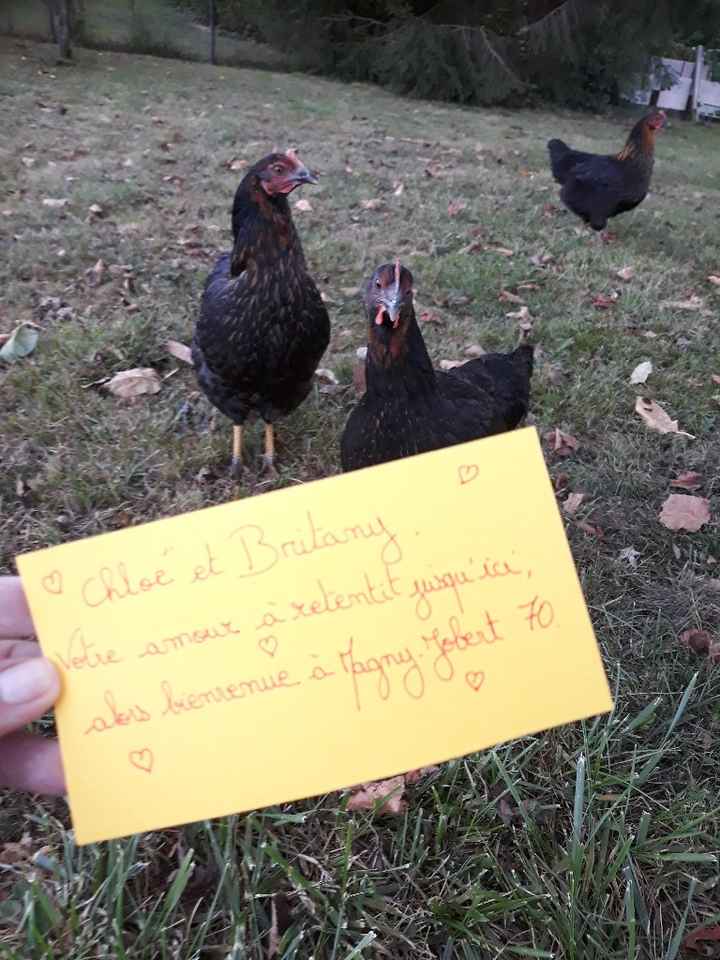 Chloé et Britany.
Votre amour à retentit jusqu'ici,
alors bienvenue à Magny-Jobert 70